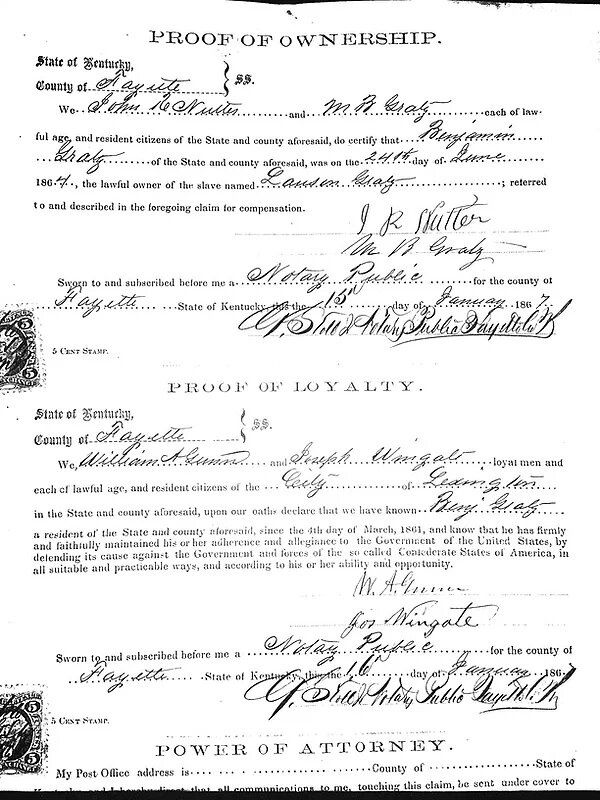 PROOF OF OWNERSHIP.
State of Kentucky,
County of Fayette } SS.
We John R Nutter and M B Gratz each of law-
ful age, and resident citizens of the State and county aforesaid, do certify that Benjamin
Gratz of the State and county aforesaid, was on the 24th day of June
1864, the lawful owner of the slave named Lauson Gratz; referred
to and described in the foregoing claim for compensation.
J R Nutter
M B Gratz
Sworn to and subscribed before me a Notary Public for the county of
Fayette State of Kentucky, this the 15 day of January 1867
Notary Public Fayette Co K
5
5 CENT STAMP.
PROOF OF LOYALTY.
State of Kentucky,
County of Fayette } SS.
We, William A Gunn and Joseph Wingate loyal men and
each of lawful age, and resident citizens of the City of Lexington
in the State and county aforesaid, upon our oaths declare that we have known Benj Gratz
a resident of the State and county aforesaid, since the 4th day of March, 1861, and know that he has firmly
and faithfully maintained his or her adherence and allegiance to the Government of the United States, by
defending its cause against the Government and forces of the so called Confederate States of America, in
all suitable and practicable ways, and according to his or her ability and opportunity.
W. A. Gunn
Jos Wingate
Sworn to and subscribed before me a Notary Public for the county of
Fayette State of Kentucky, this the 16 day of January 1867
Notary Public Fayette Co K
5
5 CENT STAMP.
POWER OF ATTORNEY.
My Post Office address is County of State of
and I hereby direct that all communications to me, touching this claim, be sent under cover to